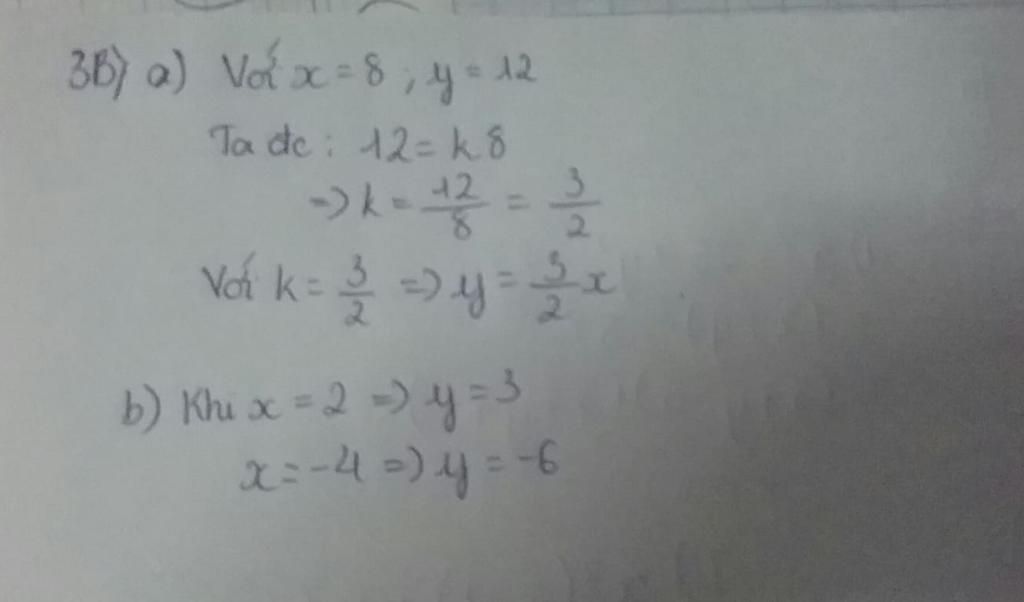 3B) a) Với x = 8 ; y = 12
Ta đc : 12 = k 8
=> k = 12/8 = 3/2
Với k = 3/2 => y = 3/2 x
b) Khi x = 2 => y = 3
x = -4 => y = -6